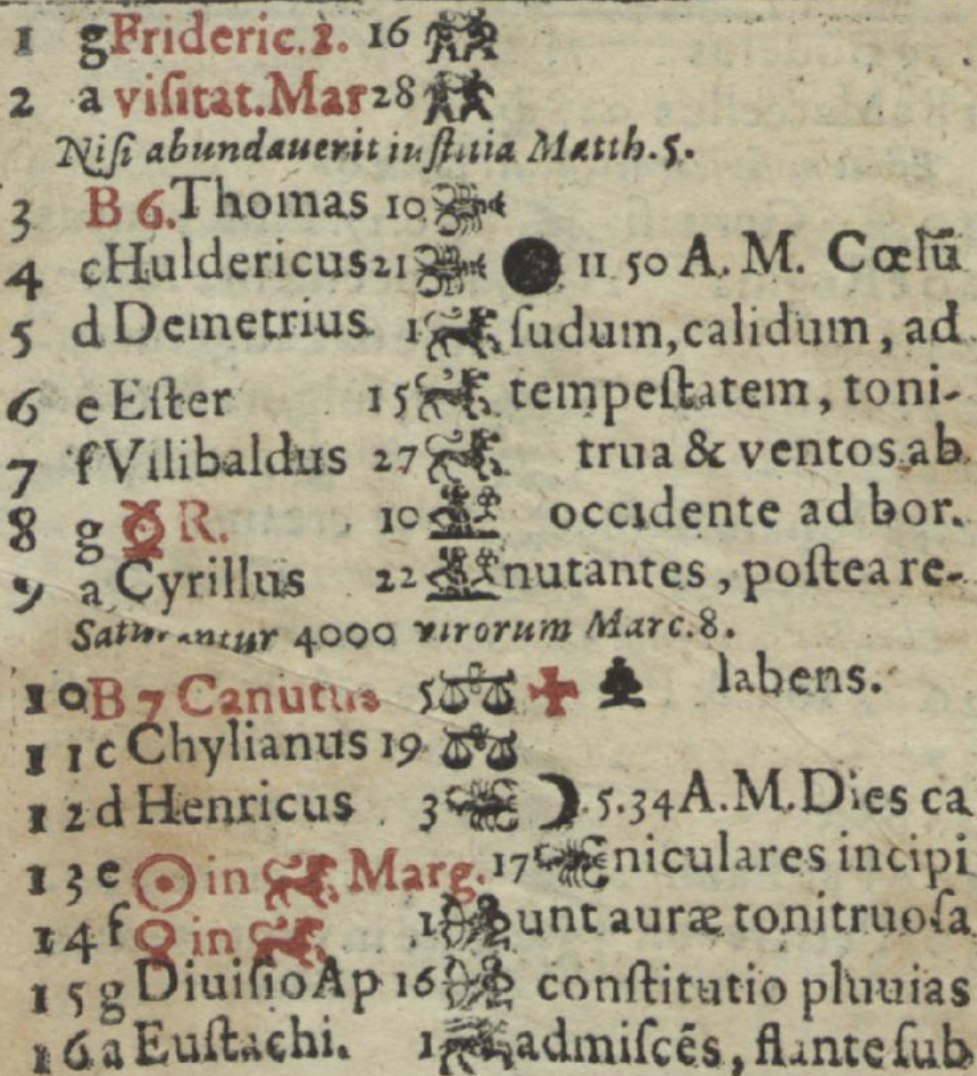 1 g Frideric. 2. 16
2 a visitat. Mar 28
Nisi abundauerit iustitia Matth. 5.
3 B 6. Thomas 10
4 c Huldericus 21 11 50 A. M. Cœlū
5 d Demetrius 1 ſudum, calidum, ad
6 e Eſter 15 tempeſtatem, toni-
7 f Vilibaldus 27 trua & ventos ab
8 g ☿ R. 10 occidente ad bor.
9 a Cyrillus 22 nutantes, poſtea re-
Saturantur 4000 virorum Marc. 8.
10 B 7 Canutus 5 labens.
11 c Chylianus 19
12 d Henricus 3 ☽ 5.34 A. M. Dies ca
13 e ☉ in ♌ Marg. 17 niculares incipi
14 f ♀ in ♌ 1 unt auræ tonitruoſa
15 g Diuiſio Ap 16 conſtitutio pluuias
16 a Euſtachi. 1 admiſcēs, flante ſub